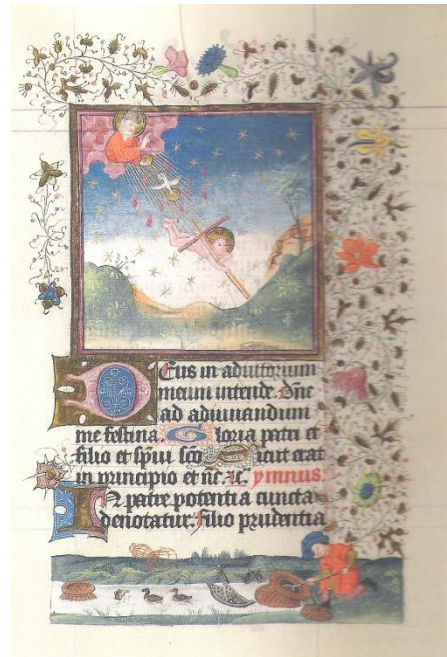 Deus in adiutorium
meum intende. dñe
ad adiuuandum
me festina. Gloria patri et
filio et spũi scõ Sicut erat
in principio et nc̃. ⁊c. ymnus.
A patre potentia cuncta
denotatur. filio prudentia